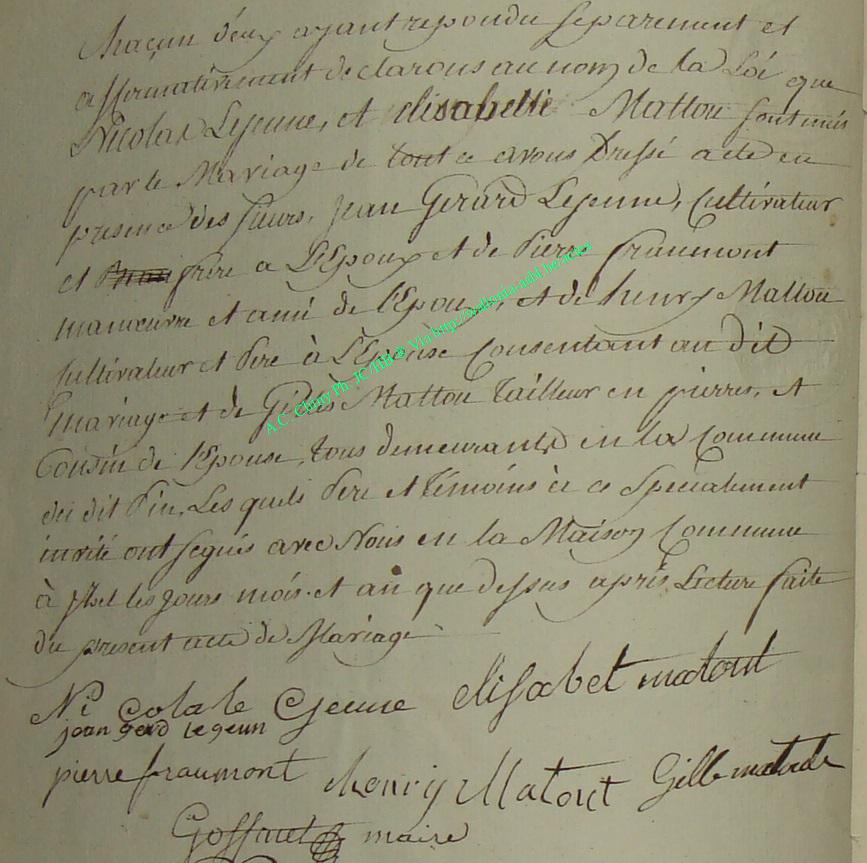 Chacun d'eux ayant repondu separement et
affirmativement declarons au nom de la Loi que
Nicolas Lejeune, et elisabetht Mattou sont unis
par le Mariage de tout ce avons Dressé acte en
presence des sieurs, Jean Gerard Lejeune, Cultivateur
et frère a L'Epoux et de Pierre fraumont
manœuvre et ami de l'Epoux, et de henry Mattou
Cultivateur et Pere à L'Epouse Consentant au dit
mariage et de Gilles Mattou Tailleur en pierres, et
Cousin de l'Epouse, tous demeurants en la Commune
du dit Pin, Les quels Pere et Témoins à ce Specialement
invité ont signés avec Nous en la Maison Commune
à les Jours mois et an que dessus après Lecture faite
du present acte de Mariage
Ni colale Cjeune elisabet matout
jean gerd Legeun
pierre fraumont henrij Matout Gille
Goffinet maire
A.C. Chiny Ph. JC HH © Via http://wallonia-asbl.be/actes